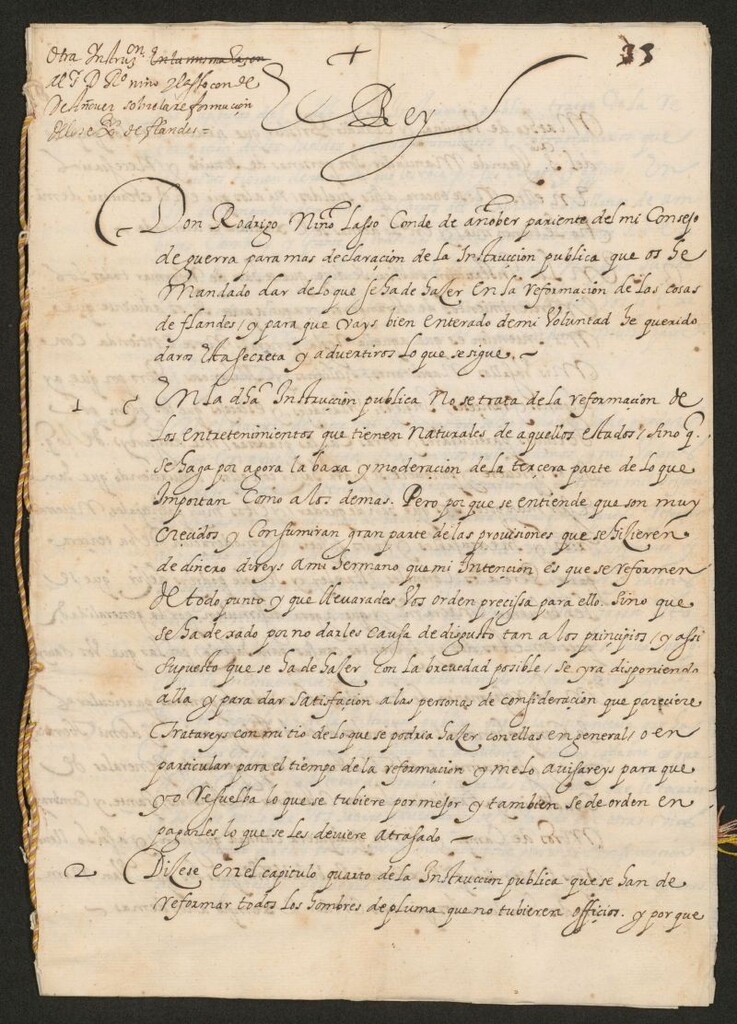 33
Otra Instruon En la misma razon
al S D Ro niño y lasso con de
de Añover sobre la reformacion
de los de flandes=
El Rey
Don Rodrigo Niño Lasso Conde de añober pariente del mi Consejo
de guerra para mas declaración de la Instrucción publica que os he
Mandado dar de lo que se ha de hazer En la reformacion de las cosas
de flandes / y para que vays bien enterado de mi Voluntad he querido
daros Esta secreta y advertiros lo que se sigue. —
1 En la dha Instrucción publica No se trata de la reformacion de
los entretenimientos que tienen Naturales de aquellos estados / sino q.
se haga por agora la baxa y moderación de la tercera parte de lo que
Importan como a los demas. Pero por que se entiende que son muy
Crecidos y Consumiran gran parte de las provisiones que se hizieren
de dinero direys a mi hermano que mi Intención es que se reformen
de todo punto y que llevarades Vos orden precissa para ello. sino que
se ha dexado por no darles causa de disgusto tan a los principios / y assi
supuesto que se ha de hazer con la brevedad posible / se yra disponiendo
alla y para dar satisfacion a las personas de consideración que pareciere
Tratareys con mi tio de lo que se podria hazer con ellas en general / o en
particular para el tiempo de la reformacion y me lo avisareys para que
yo resuelba lo que se tubiere por mejor y tambien se de orden en
pagarles lo que se les deviere atrasado —
2 Dizese en el capitulo quarto de la Instrucción publica que se han de
reformar todos los hombres de pluma que no tubieren officios. y por que